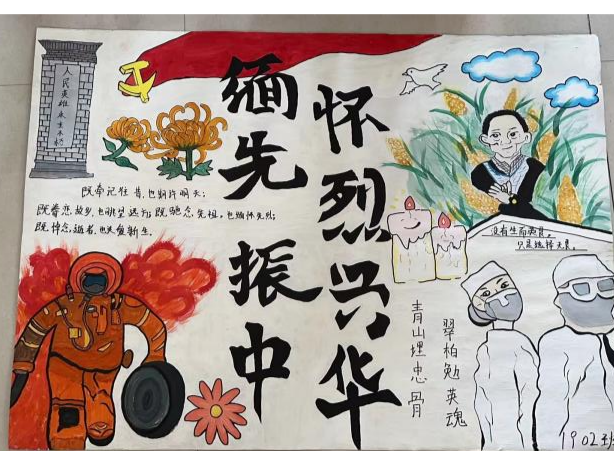 人民英雄永垂不朽
缅怀
先烈
振兴
中华
既牵记往昔,也期许明天;
既眷恋故乡,也眺望远方;既驰念先祖,也缅怀先烈;
既悼念逝者,也关爱新生。
没有生而英勇,
只是选择无畏。
青山埋忠骨
翠柏勉英魂
1902班